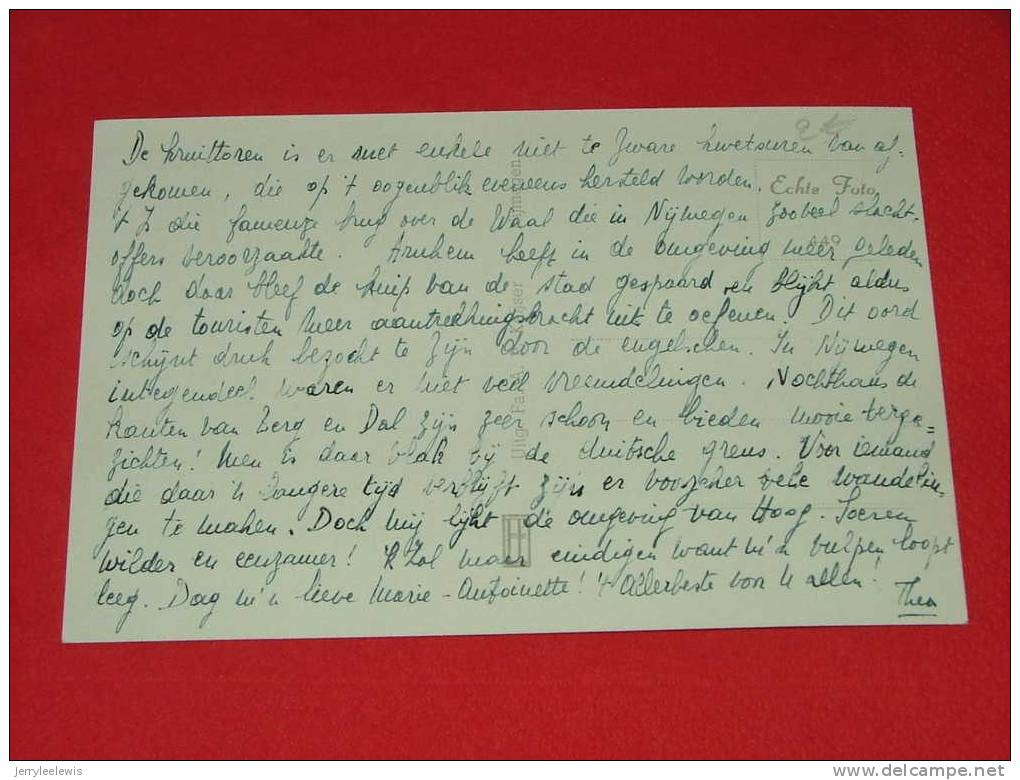 De kruittoren is er met enkele niet te zware kwetsuren van af-
gekomen, die op 't oogenblik eveneens hersteld worden.
't Is die fameuze brug over de Waal die in Nijmegen zooveel slacht-
offers veroorzaakte. Arnhem heeft in de omgeving meer geleden
doch daar bleef de kuip van de stad gespaard en blijkt aldus
op de touristen meer aantrekkingskracht uit te oefenen. Dit oord
schijnt druk bezocht te zijn door de engelschen. In Nijmegen
integendeel waren er niet veel vreemdelingen. Nochthans de
kanten van Berg en Dal zijn zeer schoon en bieden mooie verga-
zichten! Men is daar vlak bij de duitsche grens. Voor iemand
die daar 'n langere tijd verblijft zijn er voorzeker vele wandelin-
gen te maken. Doch mij lijkt de omgeving van Hoog. Soeren
wilder en eenzamer! 'k Zal maar eindigen want m'n vulpen loopt
leeg. Dag m'n lieve Marie-Antoinette! 't Allerbeste voor U allen!
Thea
Echte Foto
jerryleelewis
delcampe.net